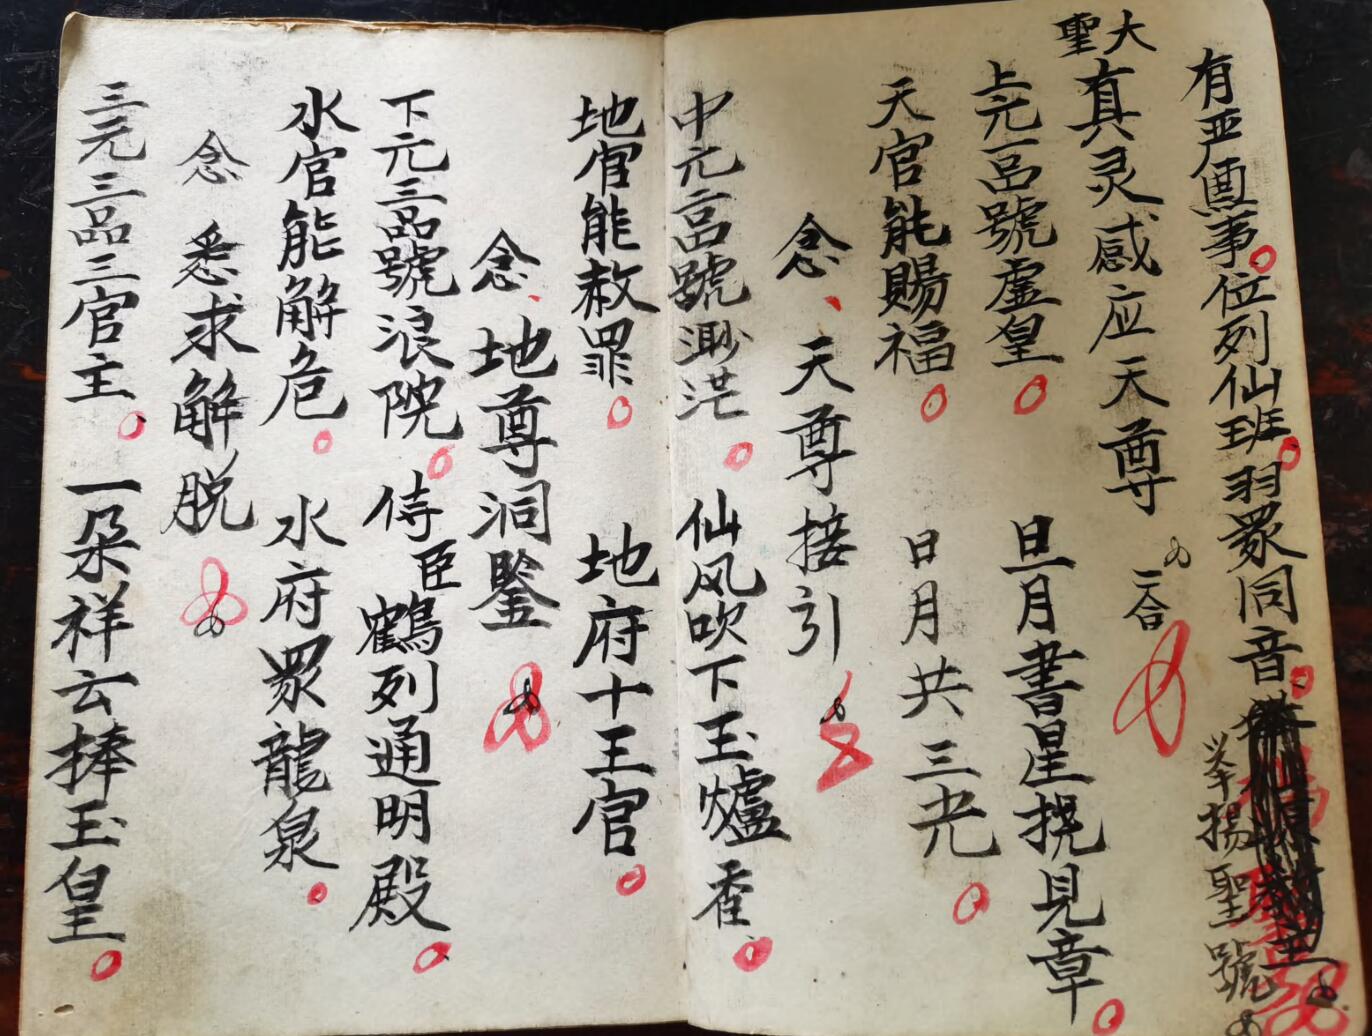 有严畐事位列仙班羽眾同音
举扬聖號
大聖
真灵感应天尊
二合
上元一品號虛皇 旦月書星拱見章
天官能賜福 日月共三光
念、天尊接引
中元二品號渺茫 仙风吹下玉爐香
地官能赦罪 地府十王官
念、地尊洞鑒
下元三品號浪院 侍臣鶴列通明殿
水官能解危 水府眾龍泉
念 悉求解脱
三元三品三官主 一朵祥云捧玉皇